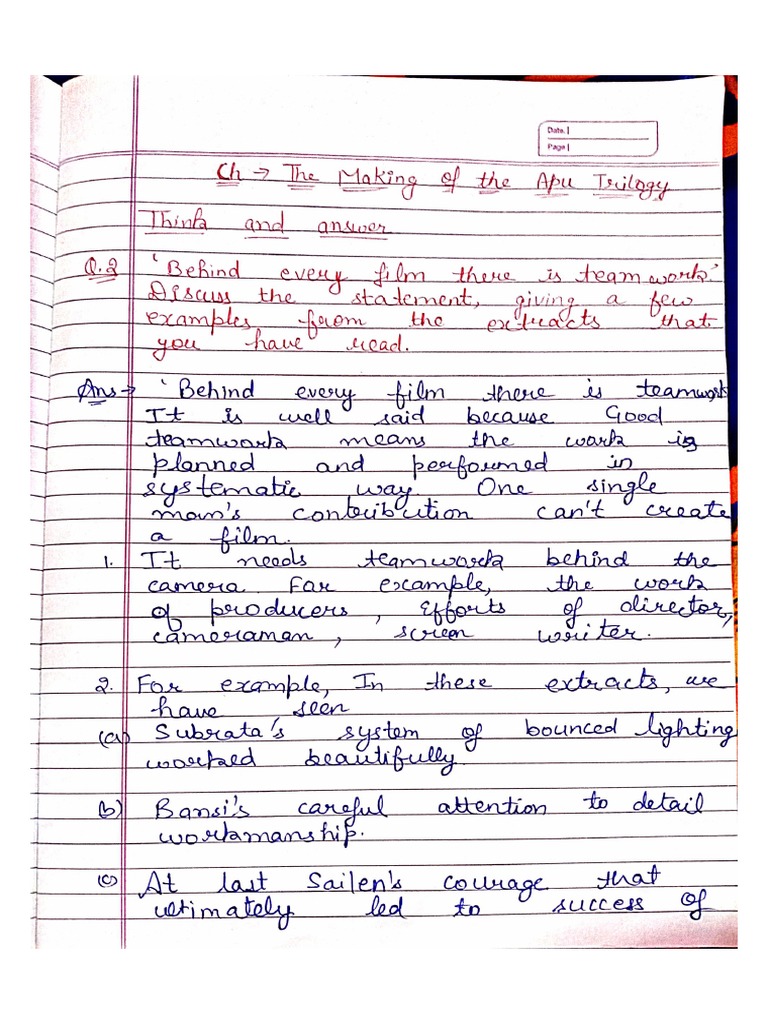 Date.
Page
Ch → The Making of the Apu Trilogy
Think and answer
Q.2 'Behind every film there is teamwork.'
Discuss the statement, giving a few
examples from the extracts that
you have read.
Ans → 'Behind every film there is teamwork
It is well said because Good
teamwork means the work is
planned and performed in
systematic way. One single
man's contribution can't create
a film.
1. It needs teamwork behind the
camera For example, the work
of producers, Efforts of director,
cameraman, screen writer.
2. For example, In these extracts, we
have seen
(a) Subrata's system of bounced lighting
worked beautifully
(b) Bansi's careful attention to detail
workmanship.
(c) At last Sailen's courage that
ultimately led to success of